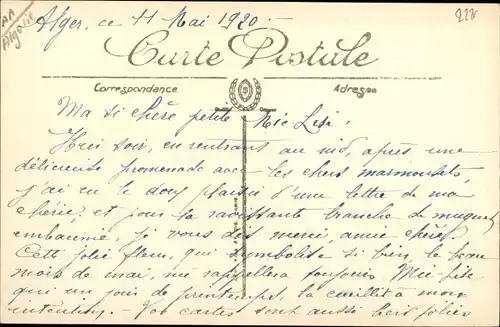 Alger, ce 11 Mai 1920.
AA
Algérie
222
Carte Postale
Correspondance
Adresse
Ma si chère petite Mie-Lisi.
Hier soir, en rentrant au nid, après une
délicieuse promenade avec les chers marmousets,
j'ai eu le doux plaisir d'une lettre de ma
chérie, et pour sa ravissante branche de muguet
embaumée, je vous dis merci, amie chère.
Cette jolie fleur, qui symbolise si bien, le beau
mois de mai, me rappellera toujours
qui un jour de printemps, la cueillit à mon
intention. Vos cartes sont aussi très jolies